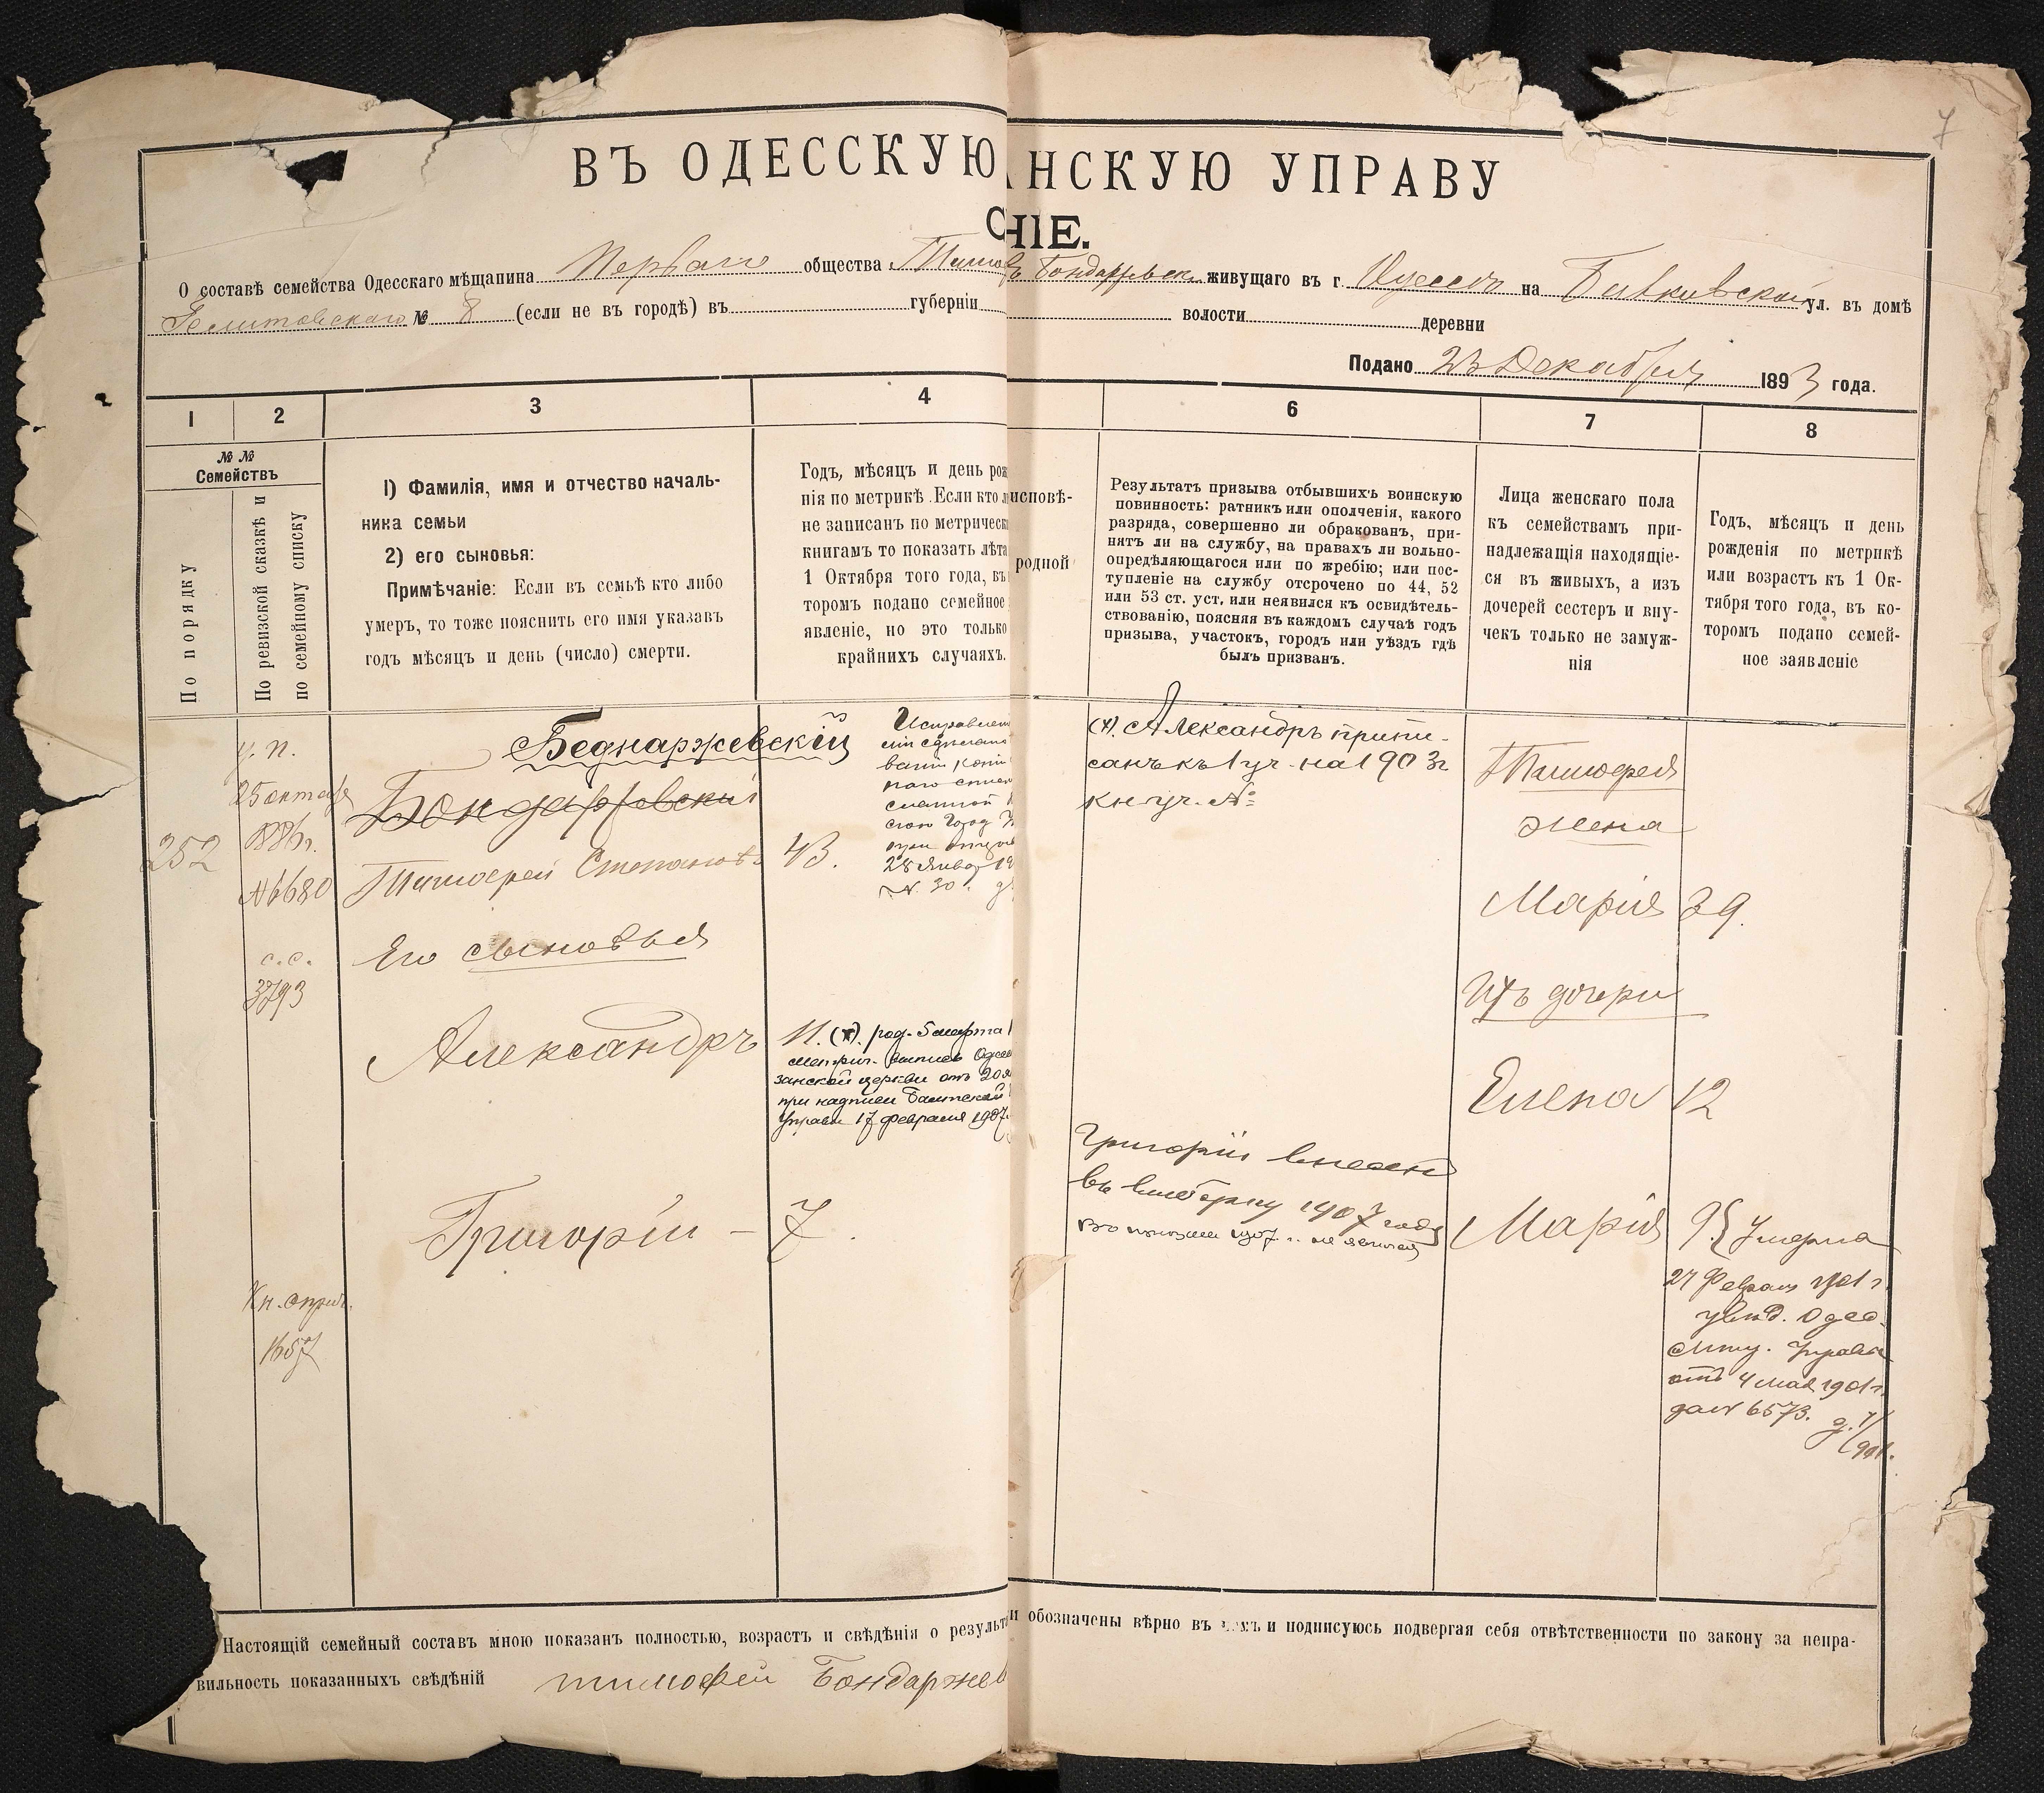 7
ВЪ ОДЕССКУЮ НСКУЮ УПРАВУ
НІЕ.
О составѣ семейства Одесскаго мѣщанина Перваго общества Тимо Бондаржевск живущаго въ г. Одессѣ на ул. въ домѣ
№ 8 (если не въ городѣ) въ губерніи волости деревни
Подано 23 Декабря 1893 года.
1 2 3 4 6 7 8
№ №
Семействъ
По порядку
По ревизской сказкѣ и
по семейному списку
1) Фамилія, имя и отчество началь-
ника семьи
2) его сыновья:
Примѣчаніе: Если въ семьѣ кто либо
умеръ, то тоже пояснить его имя указавъ
годъ мѣсяцъ и день (число) смерти.
Годъ, мѣсяцъ и день рож
нія по метрикѣ. Если кто л
не записанъ по метрическ
книгамъ то показать лѣта
1 Октября того года, въ
торомъ подано семейное
явленіе, но это только
крайнихъ случаяхъ.
исповѣ-
родной
Результатъ призыва отбывшихъ воинскую
повинность: ратникъ или ополченія, какого
разряда, совершенно ли обракованъ, при-
нятъ ли на службу, на правахъ ли вольно-
опредѣляющагося или по жребію; или пос-
тупленіе на службу отсрочено по 44, 52
или 53 ст. уст. или неявился къ освидѣтель-
ствованію, поясняя въ каждомъ случаѣ годъ
призыва, участокъ, городъ или уѣздъ гдѣ
былъ призванъ.
Лица женскаго пола
къ семействамъ при-
надлежащія находящіе-
ся въ живыхъ, а изъ
дочерей сестеръ и вну-
чекъ только не замуж-
нія
Годъ, мѣсяцъ и день
рожденія по метрикѣ
или возрастъ къ 1 Ок-
тября того года, въ ко-
торомъ подано семей-
ное заявленіе
252
у. п.
25 октября
1886 г.
№6680
с. с.
3793
Кн. апрѣл.
1657
Беднаржевскій
Бондаржевскій
Тимофей Степановъ 43.
Его сыновья
Александръ 11. (х). род. 5 марта
метрич. выпись Одес
занской церкви отъ 20
при надписи Балтской
Управы 17 февраля 1907
Григорій - 7.
28 Январ 19
№. 30
(х). Александръ припи-
санъ къ 1 уч. на 1903 г
кн. уч. №
Григорій внесенъ
въ 1907 года
1907 г. не
Тимофея
жена
Марія 39.
Ихъ дочери
Елена 12
Марія 9. Умерла
27 Февраля 1901 г.
увѣд. Одес.
Мѣщ. Управы
отъ 4 мая 1901 г.
за № 6573.
Настоящій семейный составъ мною показанъ полностью, возрастъ и свѣдѣнія о результ и обозначены вѣрно въ и подписуюсь подвергая себя отвѣтственности по закону за непра-
вильность показанныхъ свѣдѣній тимофей Бондаржев